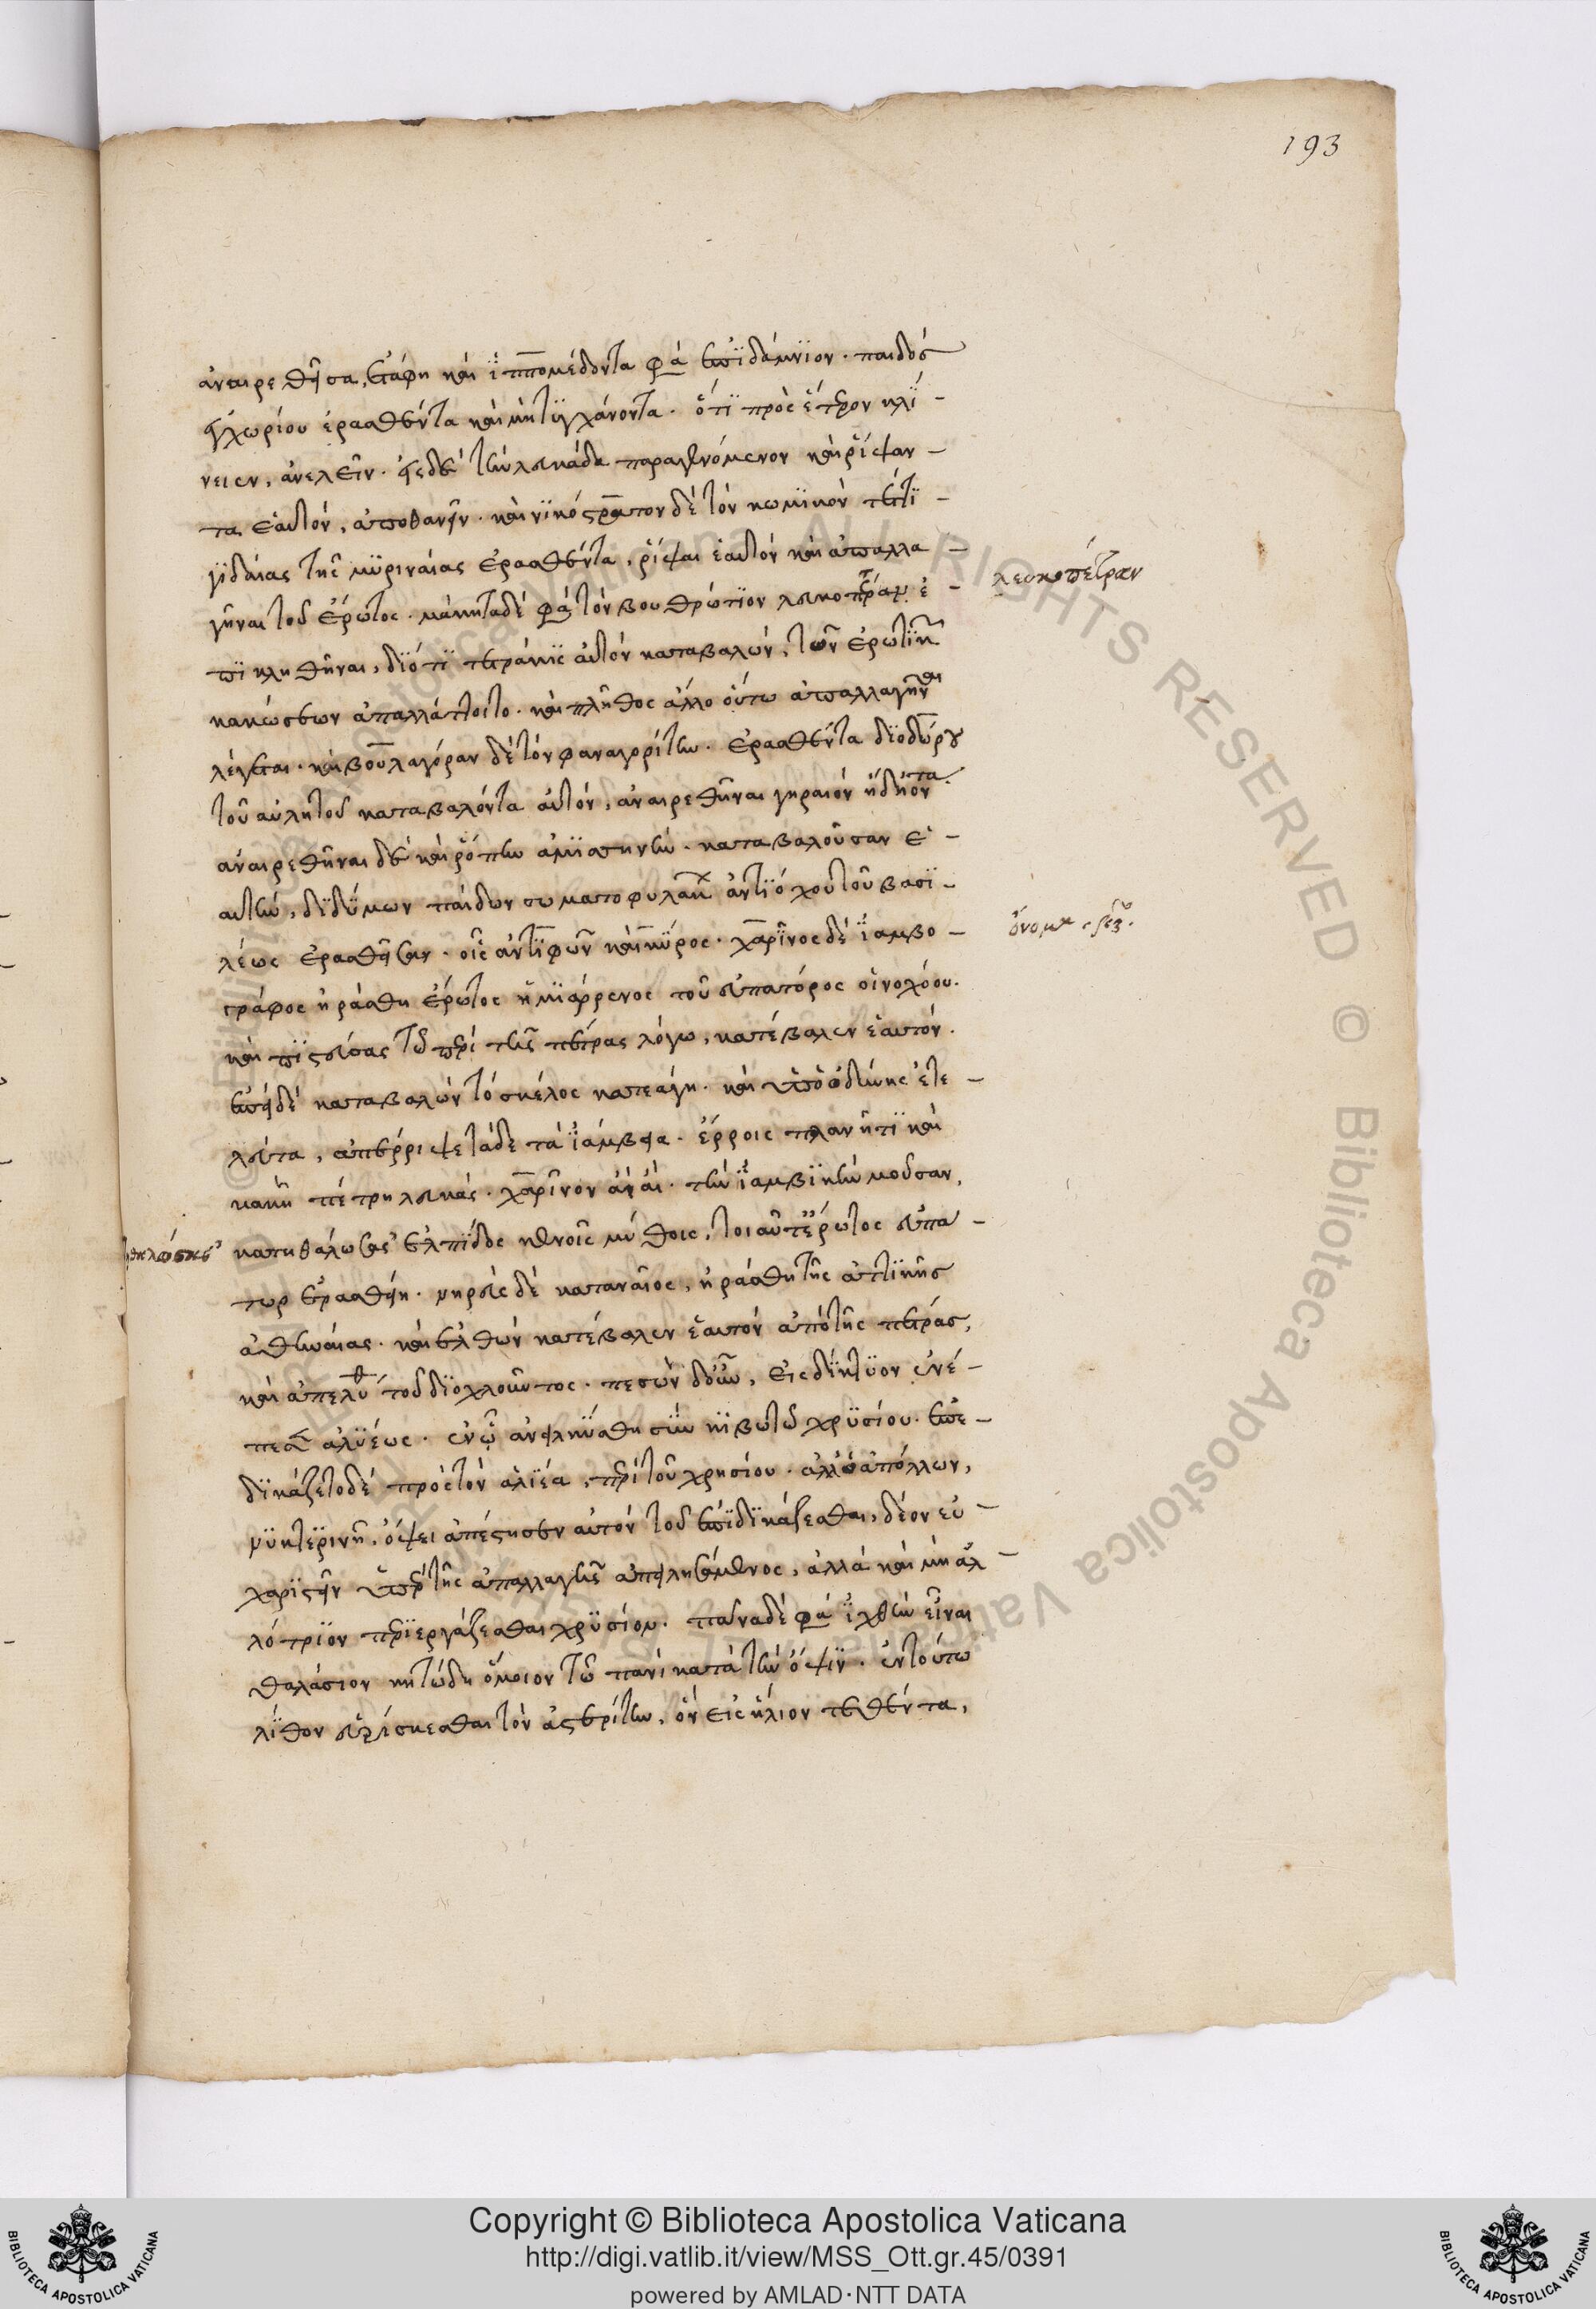 193
ἀναιρεθεῖσα, ἐτάφη καὶ ἱππομέδοντα φα ἐπιδάμνιον. παιδὸς
ἐγχωρίου ἐρασθέντα καὶ μὴ τυγχάνοντα. ὅτι πρὸς ἕτερον κλί-
νειεν, ἀνελεῖν. εἶς δὲ τὴν λευκάδα παραγενόμενον καὶ ῥίψαν-
τα ἑαυτὸν, ἀποθανεῖν. καὶ νικόστρατον δὲ τὸν κωμικὸν τετι-
γιδαίας τῆς μυριναίας ἐρασθέντα, ῥίψαι ἑαυτὸν καὶ ἀπαλλα-
γῆναι τοῦ ἔρωτος. μάκητα δὲ φα τὸν βουθρώτιον λευκοπέτραν ἐ-
πικληθῆναι, διότι τετράκις αὐτὸν καταβαλὼν, τῶν ἐρωτικῶν
κακώσεων ἀπαλλάττοιτο. καὶ πλῆθος ἄλλο οὕτω ἀπαλλαγῆναι
λέγεται. καὶ βουλαγόραν δὲ τὸν φαναγορίτην. ἐρασθέντα διοδώρου
τοῦ αὐλητοῦ καταβαλόντα αὐτὸν, ἀναιρεθῆναι γηραιὸν ἤδη ὄντα.
ἀναιρεθῆναι δὲ καὶ ῥόπην ἀμισηνὴν. καταβαλοῦσαν ἑ-
αυτὴν, διδύμων παίδων σωματοφυλάκων ἀντιόχου τοῦ βασι-
λέως ἐρασθεῖσαν. οἷς ἀντιφῶν καὶ κῦρος. χαρῖνος δὲ ἰαμβο-
γράφος ἠράσθη ἔρωτος ἡμιάρρενος τοῦ εὐπάτορος οἰνοχόου.
καὶ πιστεύσας τῷ περὶ τῆς πέτρας λόγω, κατέβαλεν ἑαυτόν.
ἐπεὶ δὲ καταβαλὼν τὸ σκέλος κατεάγη. καὶ ὑπὸ ὀδύνης ἐτε-
λεύτα, ἀπέρριψε τάδε τὰ ἰαμβεῖα. ἔρροις πλανῆτι καὶ
κακὴ πέτρη λευκάς. χαρῖνον αἰαῖ. τὴν ἰαμβικὴν μοῦσαν,
κατηθάλωσας ἐλπίδος κενοῖς μύθοις, τοιαῦτ ἔρωτος εὐπά-
τωρ ἐρασθείη. νηρεὺς δὲ καταναῖος, ἠράσθη τῆς ἀττικῆς
ἀθηναίας. καὶ ἐλθὼν κατέβαλεν ἑαυτὸν ἀπὸ τῆς πέτρας,
καὶ ἀπελύθη τοῦ διοχλοῦντος. πεσὼν δὲ, εἰς δίκτυον ἐνέ-
πεσεν ἁλιέως. ἐν ᾧ ἀνειλκύσθη σὺν κιβωτῷ χρυσίου. ἐπε-
δικάζετο δὲ πρὸς τὸν ἁλιέα, περὶ τοῦ χρυσίου. ἀλλ ὁ ἀπόλλων,
νυκτερινῇ ὄψει ἀπέστησεν αὐτὸν τοῦ ἐπιδικάζεσθαι, δέον εὐ-
χαριστεῖν ὑπὲρ τῆς ἀπαλλαγῆς ἀπειλησάμενος, ἀλλὰ καὶ μὴ ἀλ-
λότριον περιεργάζεσθαι χρυσίον. πᾶνα δὲ φα ἰχθὺν εἶναι
θαλάσιον κητώδη ὅμοιον τῷ πανὶ κατὰ τὴν ὄψιν. ἐν τούτω
λίθον εὑρίσκεσθαι τὸν ἀστερίτην, ὃν εἰς ἥλιον τεθέντα,
λευκοπέτραν
Copyright © Biblioteca Apostolica Vaticana
http://digi.vatlib.it/view/MSS_Ott.gr.45/0391
powered by AMLAD·NTT DATA
BIBLIOTECA APOSTOLICA VATICANA
BIBLIOTECA APOSTOLICA VATICANA